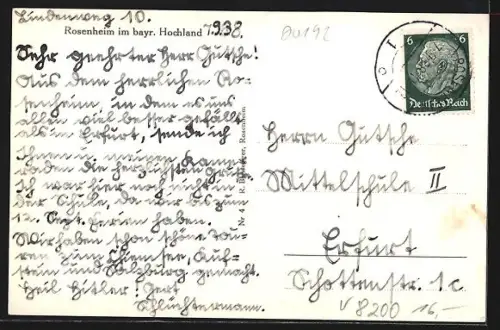 Lindenweg 10.
Rosenheim im bayr. Hochland 1938.
Sehr geehrter Herr Gutsche!
Aus dem herrlichen Ro-
senheim, in dem es uns
allen viel besser gefällt
als in Erfurt, sende ich
Ihnen u. meinen Kame-
raden die herzlichsten Grüße.
Ich war hier noch nicht in
der Schule, da wir bis zum
12. Sept. Ferien haben.
Wir haben schon schöne Tou-
ren zum Chiemsee, Kuf-
stein und Salzburg gemacht.
Heil Hitler! Gert
Schlüchtermann.
Nr 4 R. Rosenheim
6 6
Deutsches Reich
Herrn Gutsche
Mittelschule II
Erfurt
Schottenstr. 1c
V 8200 16,-